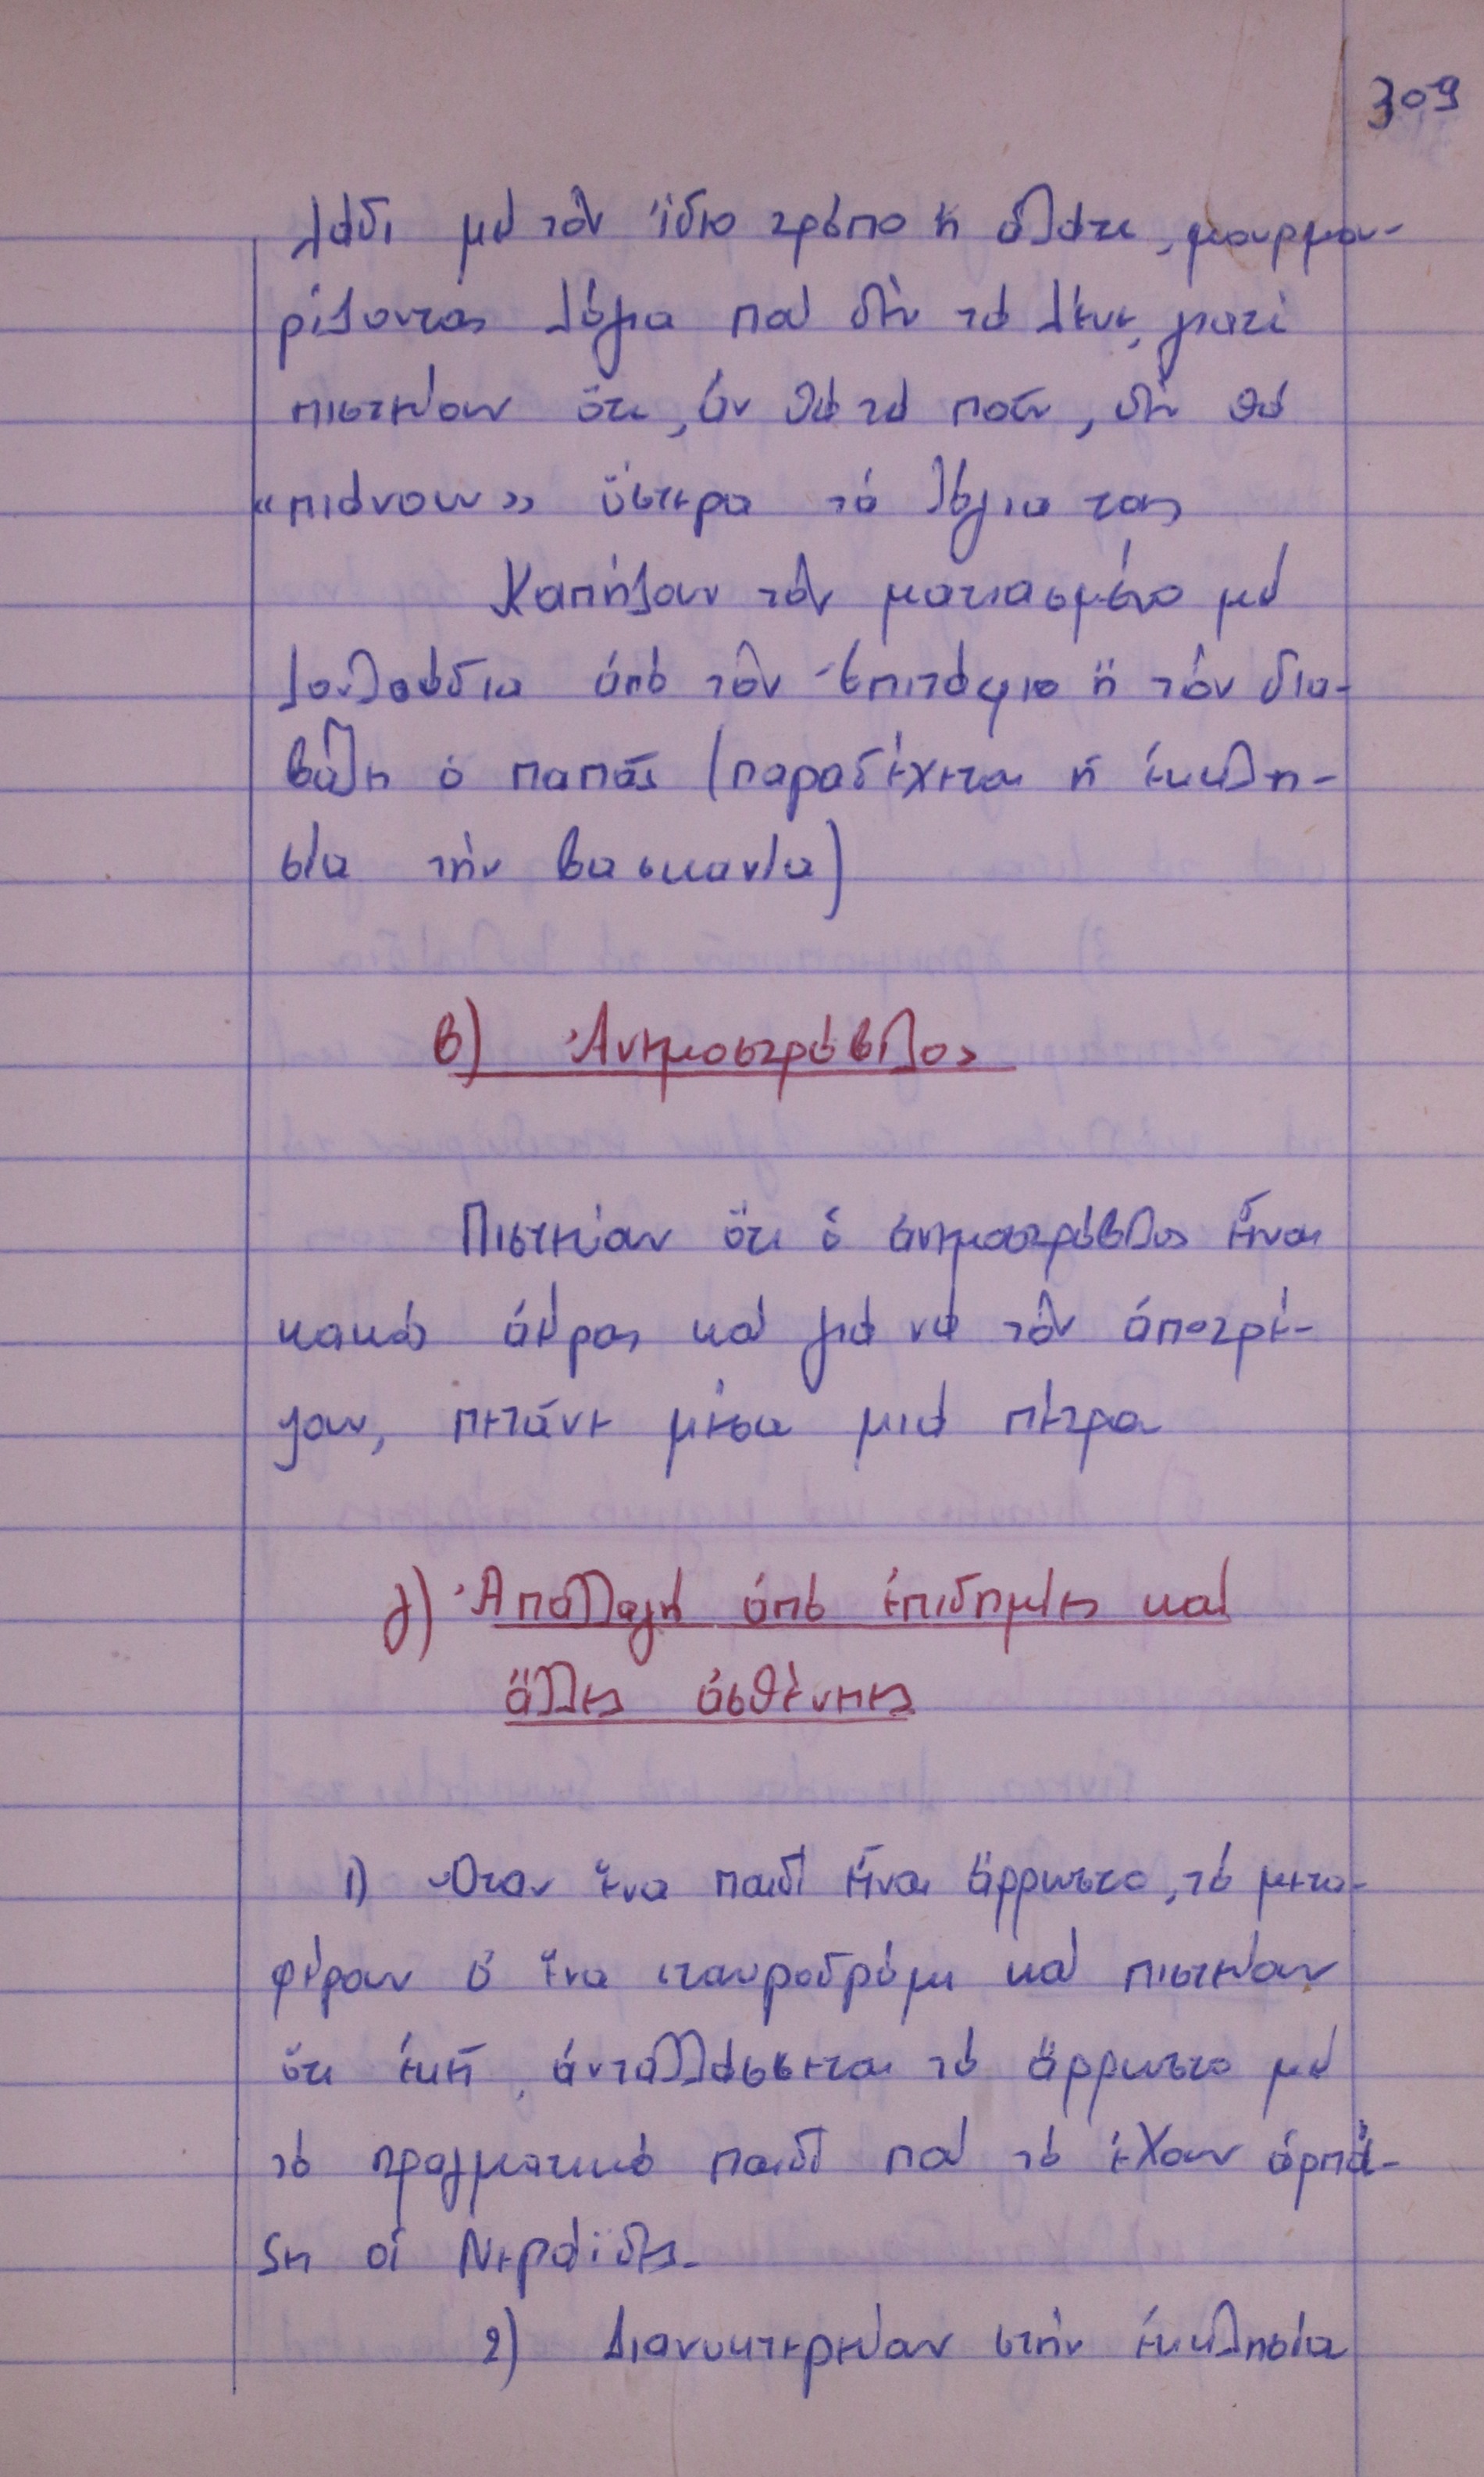 309
λάδι μὲ τὸν ἴδιο τρόπο ἤ ἀλάτι, μουρμου-
ρίζοντας λόγια ποὺ δὲν τὰ λένε, γιατί
πιστεύουν ὅτι, ἄν θὰ τὰ ποῦν, δὲν θὰ
«πιάνουν» ὕστερα τὰ λόγια τους
Καπνίζουν τὸν ματιασμένο μὲ
λουλούδια ἀπὸ τὸν Ἐπιτάφιο ἤ τὸν δια-
βάζει ὁ παπάς (παραδέχεται ἡ ἐκκλη-
σία τὴν βασκανία)
β) Ἀνεμοστρόβιλος
Πιστεύουν ὅτι ὁ ἀνεμοστρόβιλος εἶναι
κακός ἀέρας καὶ γιὰ νὰ τὸν ἀποτρέ-
ψουν, πετᾶνε μέσα μιὰ πέτρα
γ) Ἀπαλλαγή ἀπὸ ἐπιδημίες καὶ
ἄλλες ἀσθένειες
1) Ὅταν ἕνα παιδὶ εἶναι ἄρρωστο, τὸ μετα-
φέρουν σ' ἕνα σταυροδρόμι καὶ πιστεύουν
ὅτι ἐκεῖ, ἀνταλλάσσεται τὸ ἄρρωστο μὲ
τὸ πραγματικό παιδὶ ποὺ τὸ ἔχουν ἁρπά-
ξει οἱ Νεράϊδες.
2) Διανυκτερεύουν στὴν ἐκκλησία